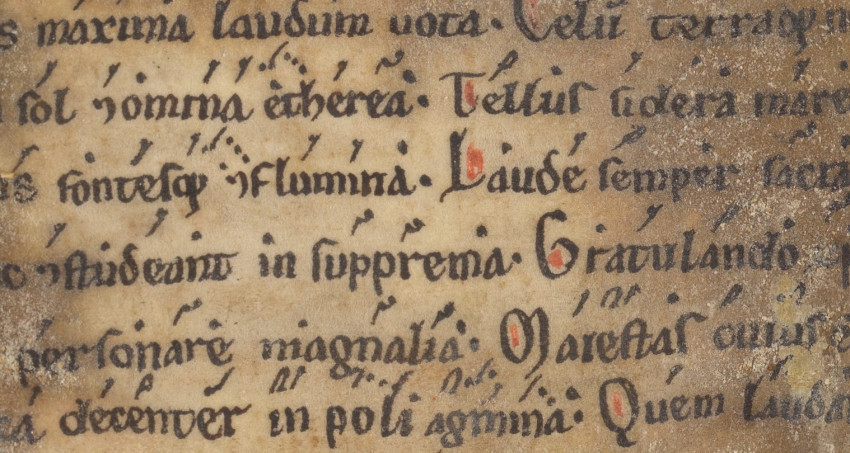 s maxima laudum uota. Celū terraqꝫ
sol ⁊ omnia etherea. Tellus sidera mare
fontesqꝫ ⁊ flumina. Laude semper sacra
⁊ studeant in supprema. Gratulando
personare magnalia. Maiestas cuius
decenter in poli agmina. Quem lauda